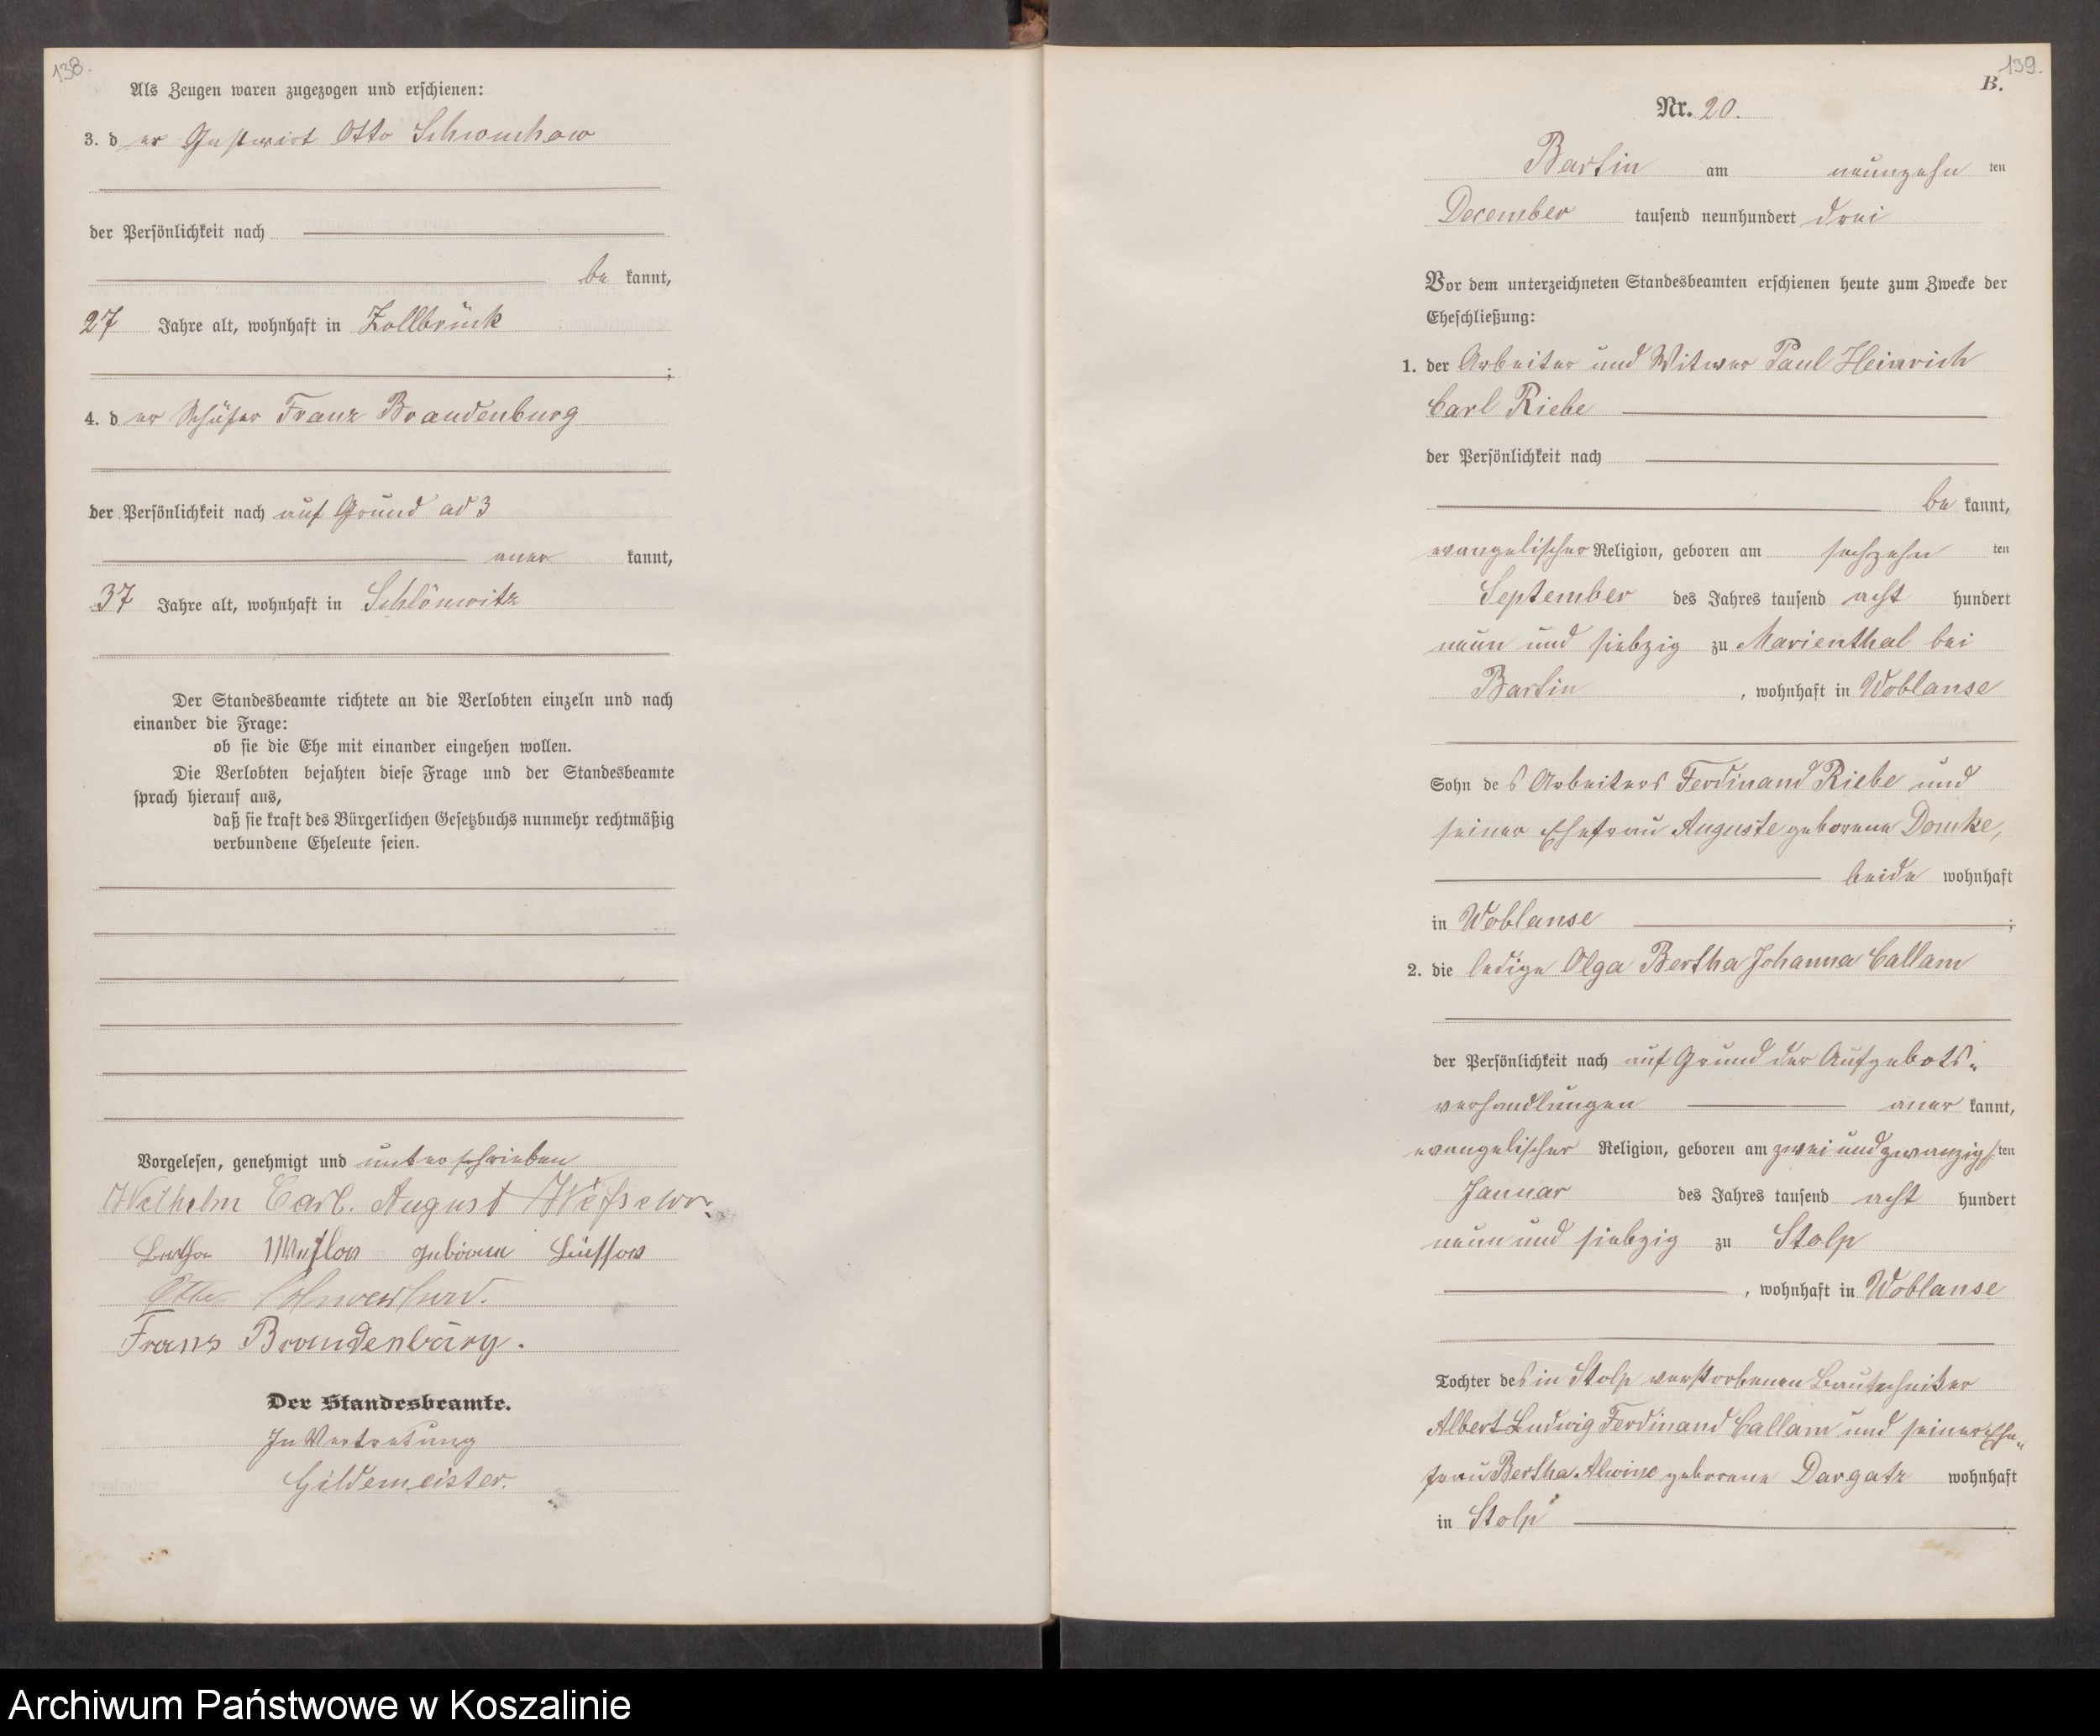 138.
Als Zeugen waren zugezogen und erschienen:
3. der Gastwirt Otto Schwuchow
der Persönlichkeit nach
be kannt,
27 Jahre alt, wohnhaft in Zollbrück
;
4. der Schäfer Franz Brandenburg
der Persönlichkeit nach auf Grund ad 3
aner kannt,
37 Jahre alt, wohnhaft in Schlönwitz
Der Standesbeamte richtete an die Verlobten einzeln und nach
einander die Frage:
ob sie die Ehe mit einander eingehen wollen.
Die Verlobten bejahten diese Frage und der Standesbeamte
sprach hierauf aus,
daß sie kraft des Bürgerlichen Gesetzbuchs nunmehr rechtmäßig
verbundene Eheleute seien.
Vorgelesen, genehmigt und unterschrieben
Wilhelm Carl. August
geborene
Otto
Franz Brandenburg.
Der Standesbeamte.
In Vertretung
Gildemeister.
139.
B.
Nr. 20.
Bartin am neunzehn ten
December tausend neunhundert drei
Vor dem unterzeichneten Standesbeamten erschienen heute zum Zwecke der
Eheschließung:
1. der Arbeiter und Witwer Paul Heinrich
Carl Riebe
der Persönlichkeit nach
be kannt,
evangelischer Religion, geboren am sechzehn ten
September des Jahres tausend acht hundert
neun und siebzig zu Marienthal bei
Bartin , wohnhaft in Woblanse
Sohn des Arbeiters Ferdinand Riebe und
seiner Ehefrau Auguste geborene Domke,
beide wohnhaft
in Woblanse ;
2. die ledige Olga Bertha Johanna Callam
der Persönlichkeit nach auf Grund der Aufgebots-
verhandlungen aner kannt,
evangelischer Religion, geboren am zwei und zwanzigsten
Januar des Jahres tausend acht hundert
neun und siebzig zu Stolp
, wohnhaft in Woblanse
Tochter des in Stolp verstorbenen Bautechniker
Albert Ludwig Ferdinand Callam und seiner Ehe-
frau Bertha Alwine geborene Dargatz wohnhaft
in Stolp
Archiwum Państwowe w Koszalinie